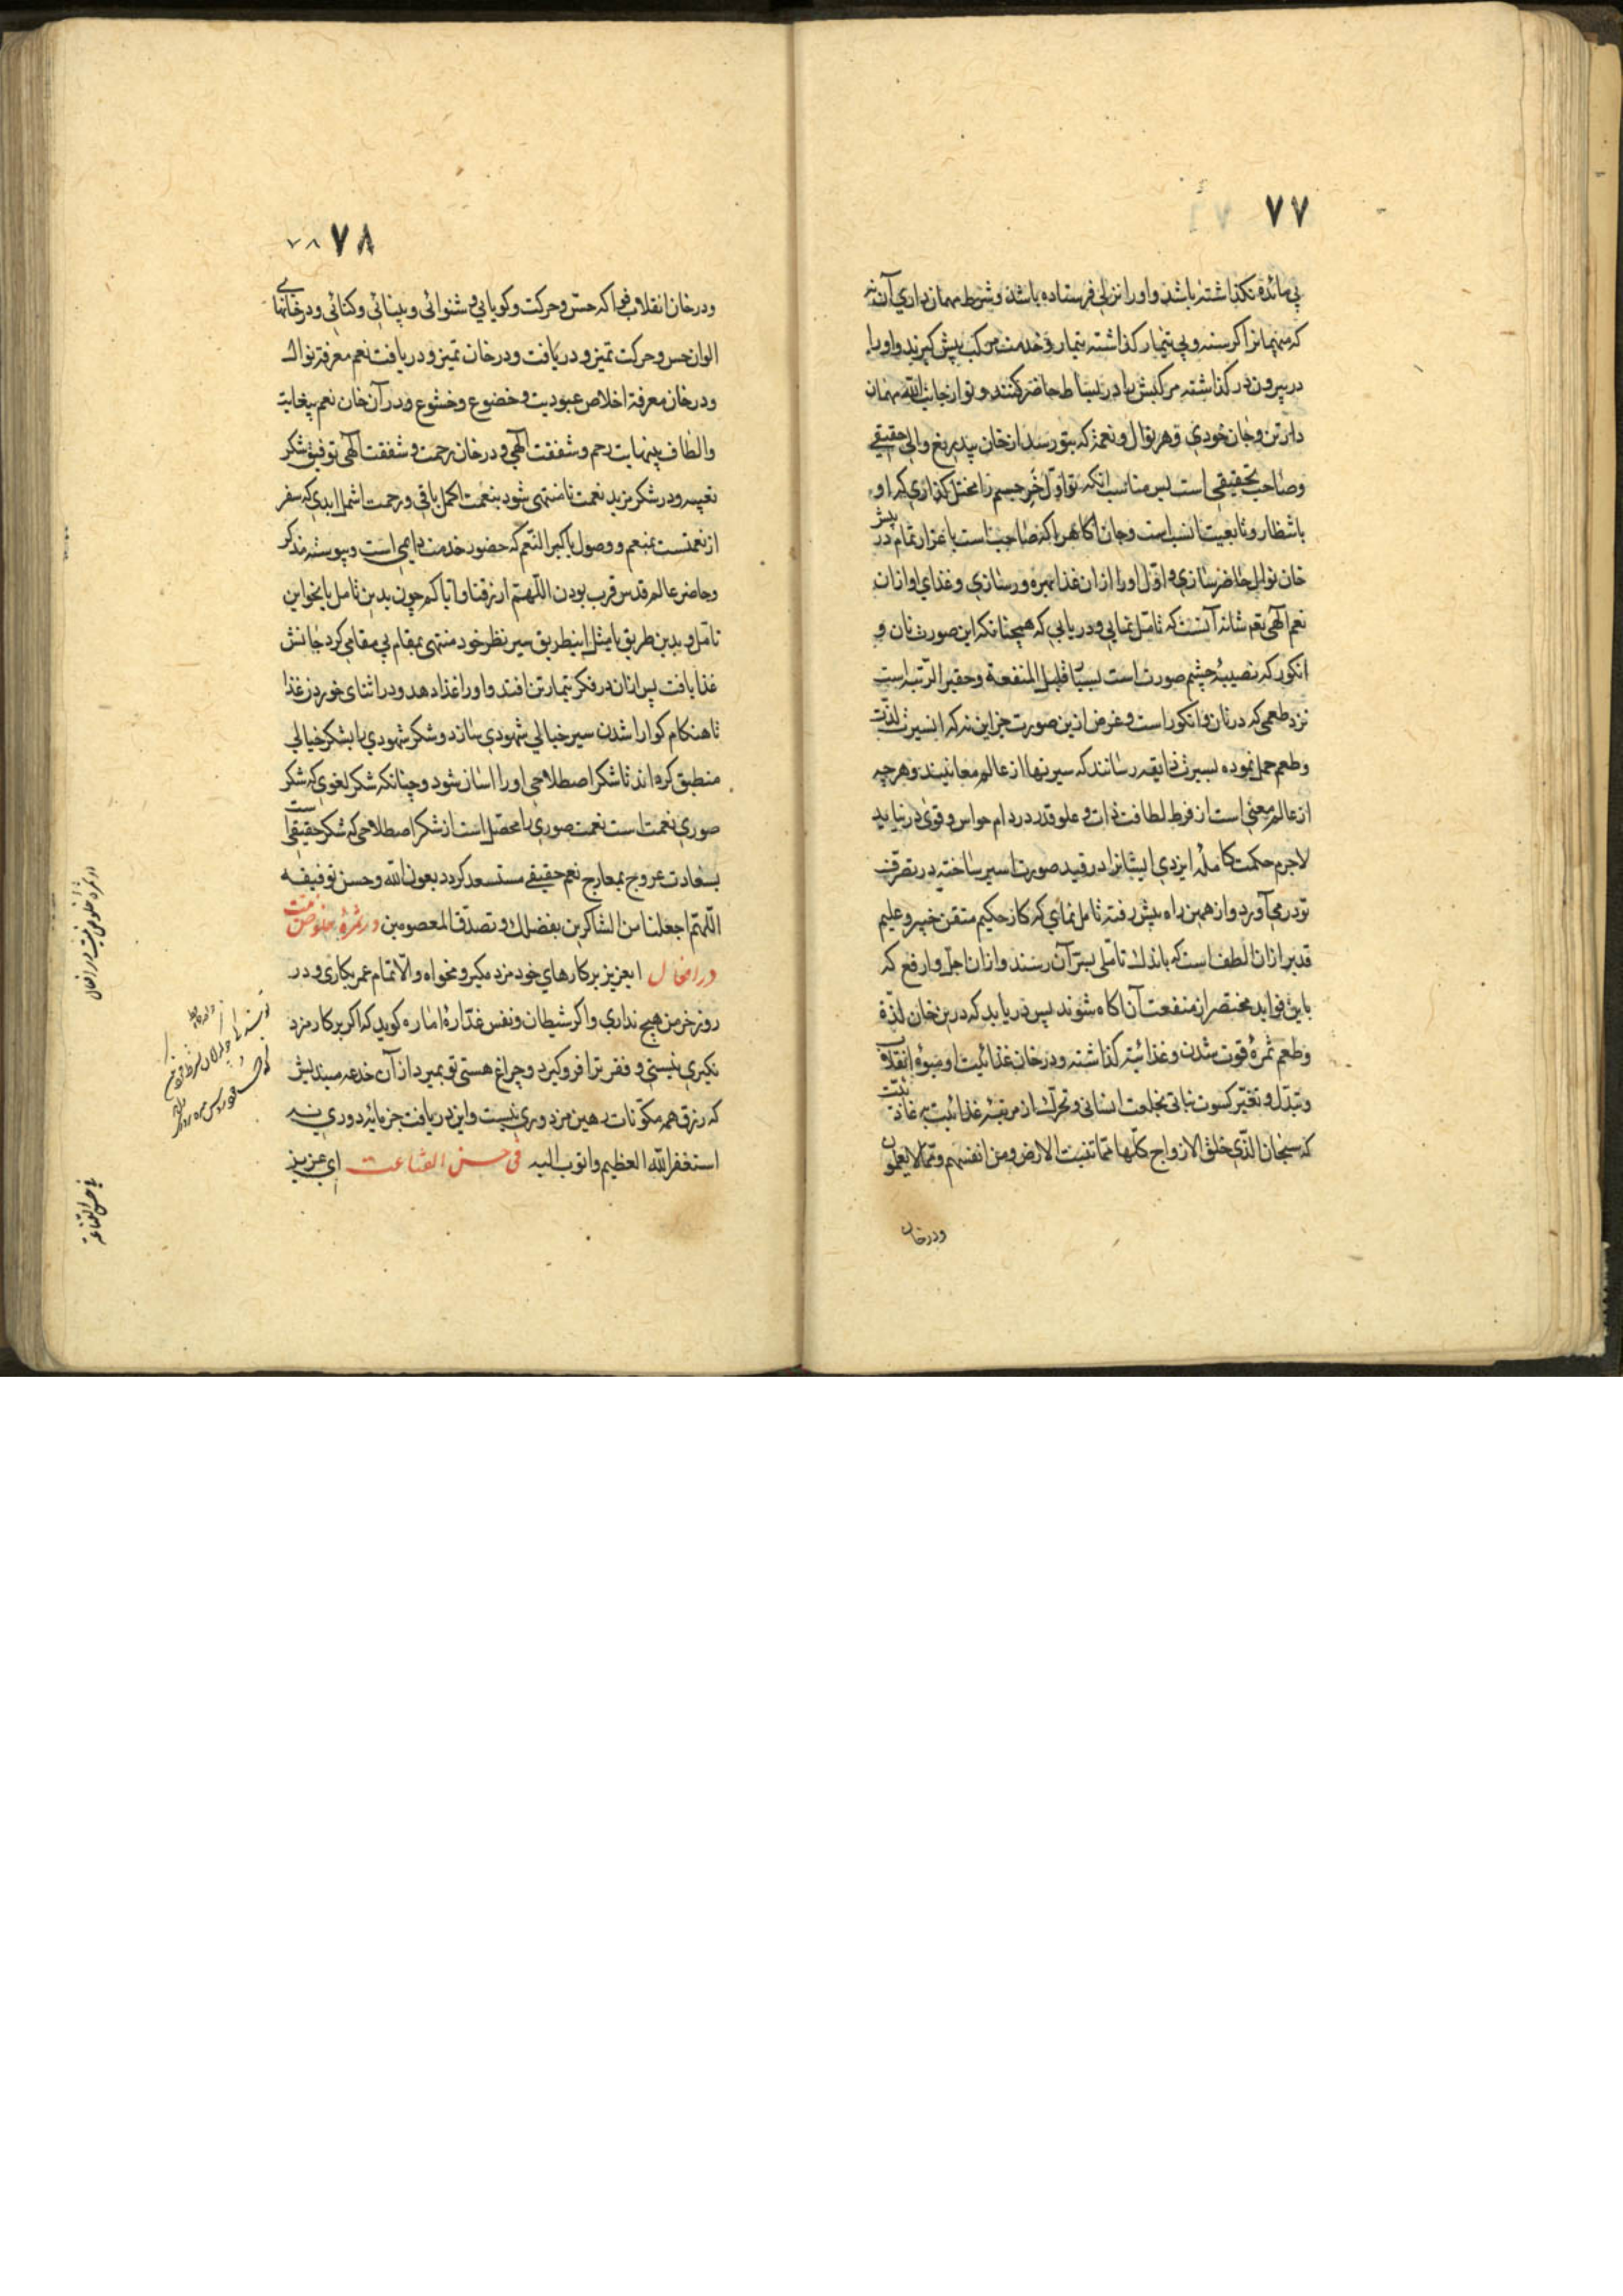 ۷۷
بی مائده نکذاشته باشد و اورا نزلی فرستاده باشد و شرط مهمان داری آن نه
که مهمانرا کرسنه و بی تیمار کذاشته تیمار و خدمت مرکب پیش کیرند و اورا
در بیرون در کذاشته مرکبش را در بساط حاضر کنند و تو از جانب الله مهمان
دار تن و جان خودی و هر نوال و نعمة که بتو رسد از خان بیدریغ والی حقیقی
و صاحب تحقیقی است پس مناسب آنکه تو اول خر جسم را مختل کذاری که او
باشطار و تابعیت تا نسب است و جان آکاهرا که صاحب است با عزاز تمام در پیش
خان نوال حاضر سازی و اول اورا از ان غذا بهره ور سازی و غذای او از ان
نعم الهی تعم شانه آنست که تامل نمایی و دریابی که همچنانکه این صورت نان و
انکور که نصیبهٔ چشم صورت است بسی قلیل المنفعة و حقیر الرتبه است
نزد طعمی که در نان و انکور است و غرض ازین صورت جز این نه که اسیر لذت
و طعم حمل نموده بسیرت ذایقه رسانند که سیر نها از عالم معانیند و هر چه
از عالم معنی است از فرط لطافت ذات و علو قدر در دام حواس و قوی در نیاید
لاجرم حکمت کاملهٔ ایزدی ایشانرا در قید صورت اسیر ساخته در تصرف
تو در می آورد و از همین راه پیش رفته تامل نمای که کاز حکیم متقن خبیر و علیم
قدیر از ان الطف است که باندک تاملی بسر آن رسند و از ان اجل و ارفع که
باین فواید مختصر از منفعت آن اکاه شوند پس دریابد که درین خان لذة
و طعم ثمرهٔ قوت شدن و غذائیه کذاشته و در خان غذائیت او میوه انقلاب
و تبدل و تغیر کسوت نباتی بخلعت انسانی و تحرک از مرتبهٔ غذائیت بر عادت
که سبحان الذی خلق الازواج کلها مما تنبت الارض و من انفسهم و مما لا یعلمون
و در خان
۷۸ ۷۸
و در خان انقلاب فوا که حس و حرکت و کویایی و شنوائی و بینائی و کنائی و در خانهای
الوان حس و حرکت تمیز و دریافت و در خان تمیز و دریافت نعم معرفة نوال
و در خان معرفة اخلاص عبودیت و خضوع و خشوع و در آن خان نعم بیغایة
و الطاف بینهایت رحم و شفقت الهی و در خان رحمت و شفقت الهی توفیق شکر
تعبیه و در شکر مزید نعمت تا منتهی شود بنعمت اکمل باقی و رحمت اشمل ابدی که سفر
از نعمتست بمنعم و وصول با کبر النعم که حضور خدمت دایمی است و پیوسته مذکر
و حاضر عالم قدس قرب بودن اللهم ارزقنا و ایاکم چون بدین تامل یا بخواین
تامل و بدین طریق یا مثل اینطریق سیر نظر خود منتهی بمقام بی مقامی کرد جانش
غذا یافت پس از ان در فکر تیمار تن افتد و اورا غذا دهد و در اثنای خوردن غذا
تا هنکام کوارا شدن سیر خیالی شهودی سازد و شکر شهودی را بشکر خیالی
منطبق کرده اند تا شکر اصطلاحی اورا اسان شود و چنانکه شکر لغوی که شکر
صوری نعمت است نعمت صوری را محصل است از شکر اصطلاحی که شکر حقیقی است
بسعادت عروج بمعارج نعم حقیقی مستسعد کردد بعون الله و حسن توفیقه
اللهم اجعلنا من الشاکرین بفضلک و تصدق المعصومین در ثمرهٔ خلوص نیت
در افعال ایعزیز بر کارهای خود مزد مکیر و مخواه و الا تمام عمر بکاری و در
روز خرمن هیچ نداری و اکر شیطان و نفس غدارهٔ اماره کوید که اکر بر کار مزد
نکیری نیستی و فقر ترا فرو کیرد و چراغ هستی تو بمیرد از آن خدعه میندیش
که رزق همه مکونات رهین مزدوری نیست و این دریافت جز مایه دوری نه
استغفر الله العظیم و اتوب الیه فی حسن القناعت ای عزیز
در ثمره خلوص نیت در افعال
فی حسن القناعة